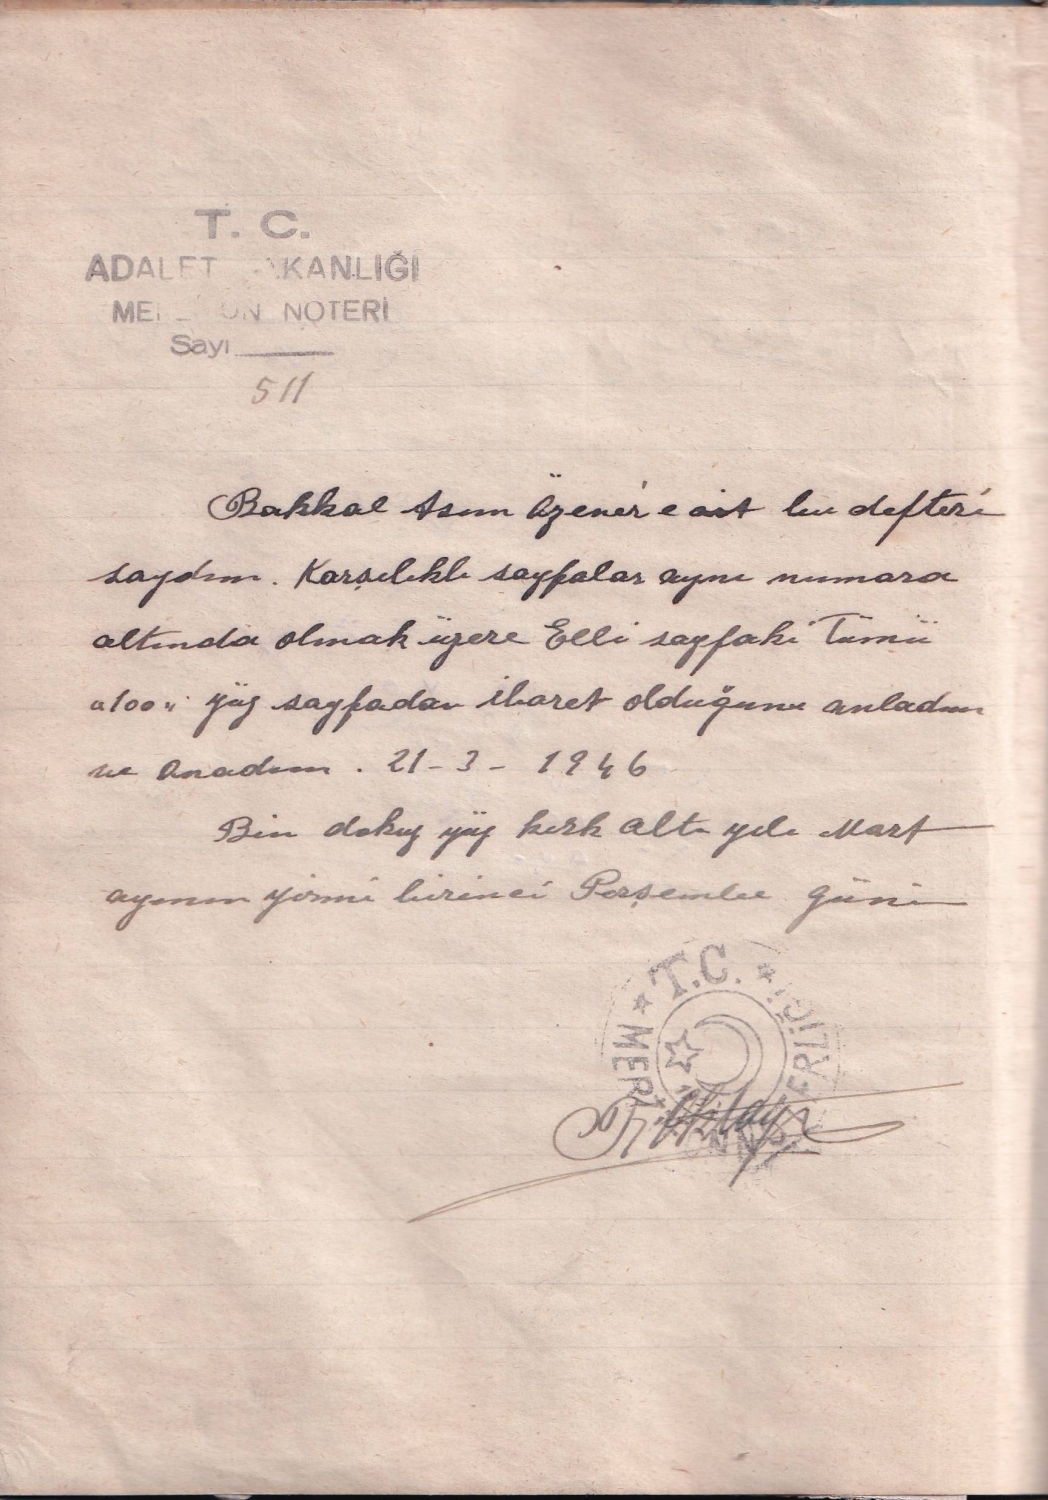 T. C.
ADALET AKANLIĞI
ME ON NOTERİ
Sayı
511
Bakkal Asım Özener'e ait bu defteri
saydım. Karşılıklı sayfalar aynı numara
altında olmak üzere Elli sayfaki Tümü
"100" yüz sayfadan ibaret olduğunu anladım
ve onadım. 21-3-1946
Bin dokuz yüz kırk altı yılı Mart
ayının yirmi birinci Perşembe günü
T.C.